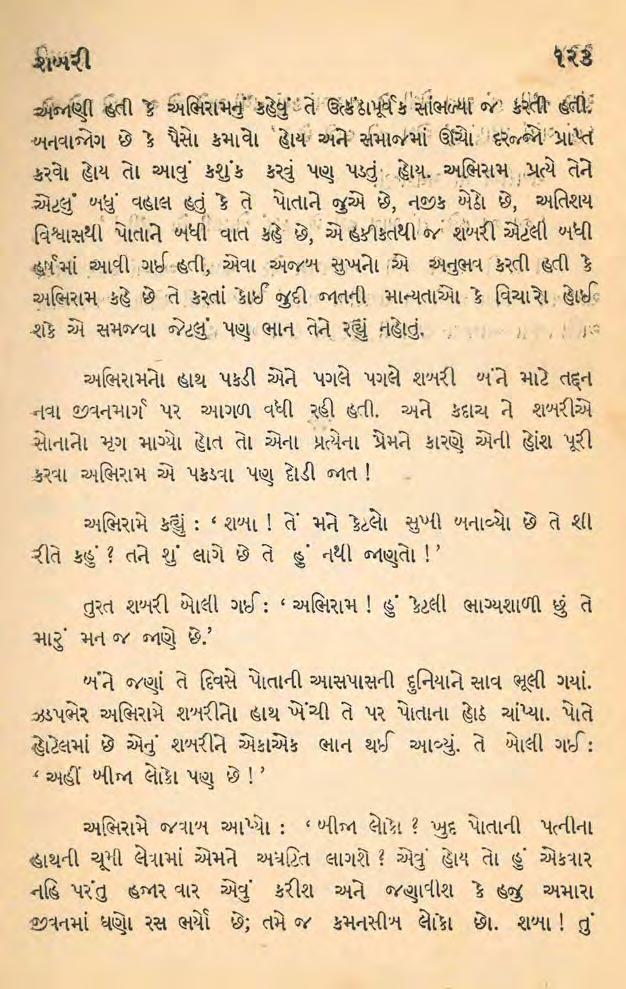 શબરી ૧૨૩
અજાણી હતી કે અભિરામનું કહેવું તે ઉત્કંઠાપૂર્વક સાંભળ્યા જ કરતી હતી.
બનવાજોગ છે કે પૈસો કમાવો હોય અને સમાજમાં ઊંચો દરજ્જો પ્રાપ્ત
કરવો હોય તો આવું કશુંક કરવું પણ પડતું હોય. અભિરામ પ્રત્યે તેને
એટલું બધું વહાલ હતું કે તે પોતાને જુએ છે, નજીક બેઠો છે, અતિશય
વિશ્વાસથી પોતાને બધી વાત કહે છે, એ હકીકતથી જ શબરી એટલી બધી
હર્ષમાં આવી ગઈ હતી, એવા અજબ સુખનો એ અનુભવ કરતી હતી કે
અભિરામ કહે છે તે કરતાં કોઈ જુદી જાતની માન્યતાઓ કે વિચારો હોઈ
શકે એ સમજવા જેટલું પણ ભાન તેને રહ્યું નહોતું.
અભિરામનો હાથ પકડી એને પગલે પગલે શબરી બંને માટે તદ્દન
નવા જીવનમાર્ગ પર આગળ વધી રહી હતી. અને કદાચ ને શબરીએ
સોનાનો મૃગ માગ્યો હોત તો એના પ્રત્યેના પ્રેમને કારણે એની હોંશ પૂરી
કરવા અભિરામ એ પકડવા પણ દોડી જાત !
અભિરામે કહ્યું : ‘ શબા ! તેં મને કેટલો સુખી બનાવ્યો છે તે શી
રીતે કહું ? તને શું લાગે છે તે હું નથી જાણતો !’
તુરત શબરી બોલી ગઈ : ‘ અભિરામ ! હું કેટલી ભાગ્યશાળી છું તે
મારું મન જ જાણે છે.’
બંને જણાં તે દિવસે પોતાની આસપાસની દુનિયાને સાવ ભૂલી ગયાં.
ઝડપભેર અભિરામે શબરીનો હાથ ખેંચી તે પર પોતાના હોઠ ચાંપ્યા. પોતે
હોટેલમાં છે એનું શબરીને એકાએક ભાન થઈ આવ્યું. તે બોલી ગઈ :
‘ અહીં બીજા લોકો પણ છે ! ’
અભિરામે જવાબ આપ્યો : ‘ બીજા લોકો ? ખુદ પોતાની પત્નીના
હાથની ચૂમી લેવામાં એમને અઘટિત લાગશે ? એવું હોય તો હું એકવાર
નહિ પરંતુ હજાર વાર એવું કરીશ અને જણાવીશ કે હજુ અમારા
જીવનમાં ઘણો રસ ભર્યો છે; તમે જ કમનસીબ લોકો છો. શબા ! તું